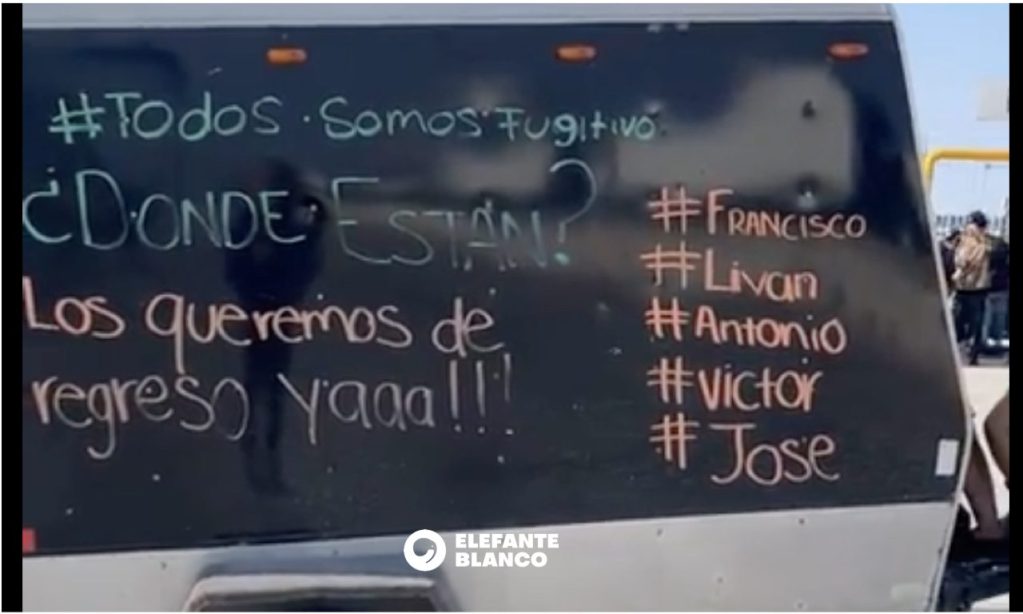 #Todos · Somos Fugitivo
¿DONDE ESTÁN?
Los queremos de
regreso yaaa!!!
#FRANCISCO
#Livan
#Antonio
#Victor
#Jose
ELEFANTE
BLANCO